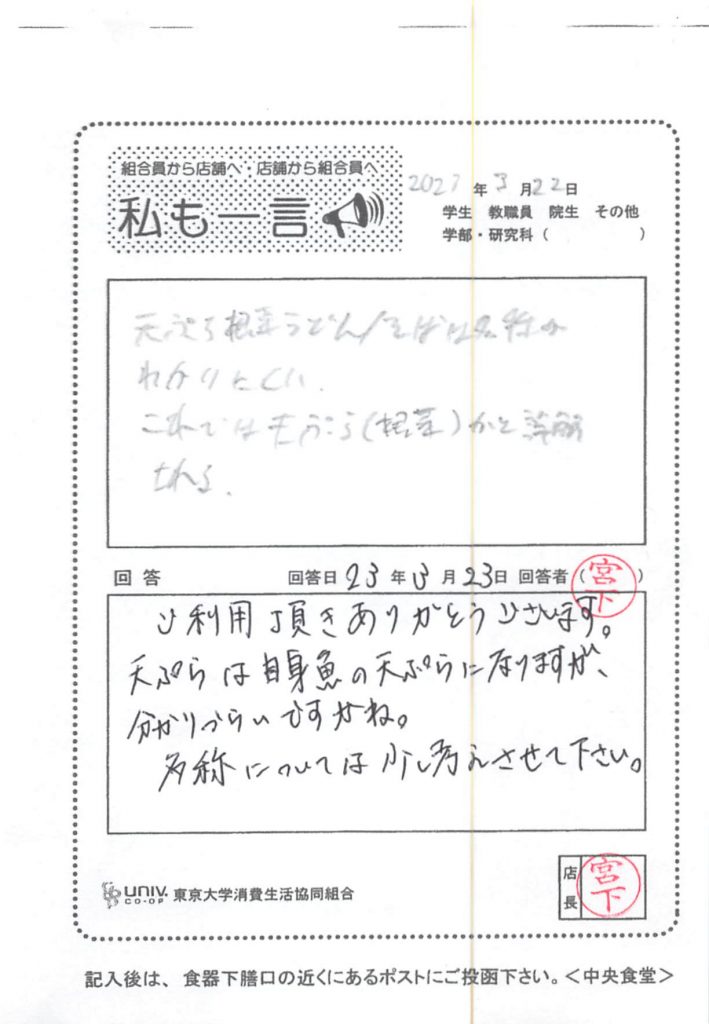 組合員から店舗へ・店舗から組合員へ
私も一言
2023年3月22日
学生 教職員 院生 その他
学部・研究科( )
天ぷら根菜うどん/そばは名称が
わかりにくい.
これでは天ぷら(根菜)かと誤解
される.
回答 回答日23年3月23日 回答者(宮下)
ご利用頂きありがとうございます。
天ぷらは白身魚の天ぷらになりますが、
分かりづらいですかね。
名称については少し考えさせて下さい。
UNIV. CO-OP 東京大学消費生活協同組合
店長 宮下
記入後は、食器下膳口の近くにあるポストにご投函下さい。<中央食堂>